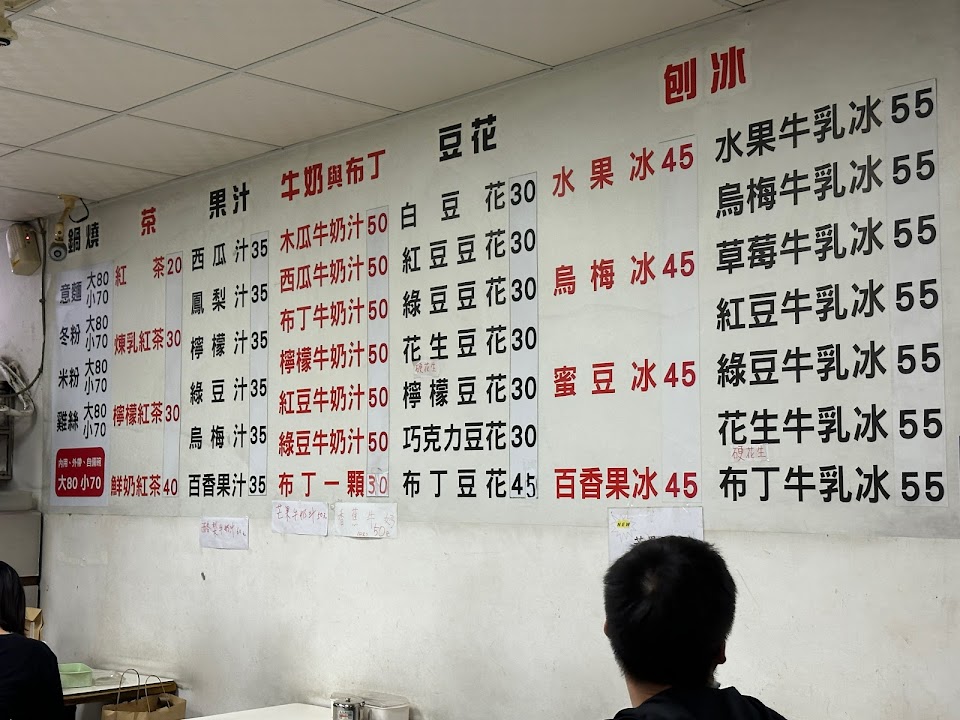 鍋燒
意麵 大80 小70
冬粉 大80 小70
米粉 大80 小70
雞絲 大80 小70
內用、外帶、自備碗
大80 小70
茶
紅茶20
煉乳紅茶30
檸檬紅茶30
鮮奶紅茶40
果汁
西瓜汁35
鳳梨汁35
檸檬汁35
綠豆汁35
烏梅汁35
百香果汁35
牛奶與布丁
木瓜牛奶汁50
西瓜牛奶汁50
布丁牛奶汁50
檸檬牛奶汁50
紅豆牛奶汁50
綠豆牛奶汁50
布丁一顆30
芒果牛奶汁
50元
豆花
白豆花30
紅豆豆花30
綠豆豆花30
花生豆花30
硬花生
檸檬豆花30
巧克力豆花30
布丁豆花45
刨冰
水果冰45
烏梅冰45
蜜豆冰45
百香果冰45
NEW
水果牛乳冰55
烏梅牛乳冰55
草莓牛乳冰55
紅豆牛乳冰55
綠豆牛乳冰55
花生牛乳冰55
硬花生
布丁牛乳冰55